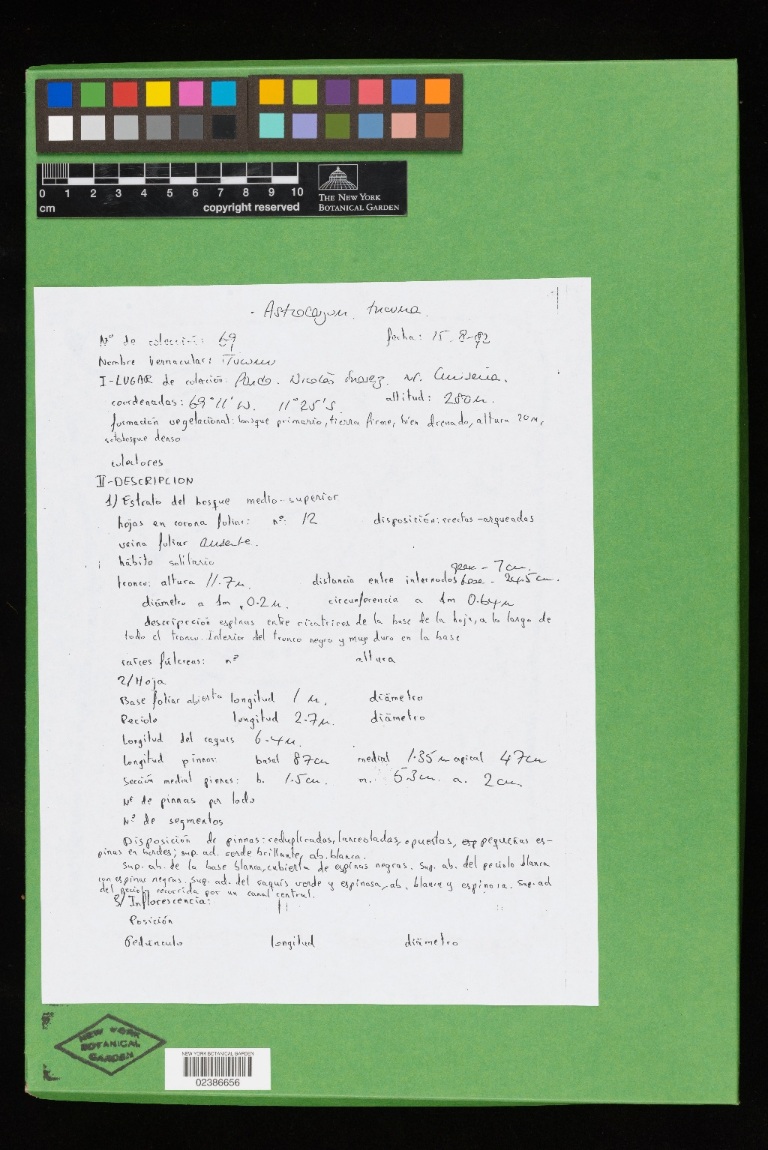 0 1 2 3 4 5 6 7 8 9 10
cm
copyright reserved
THE NEW YORK
BOTANICAL GARDEN
Nº de colección: 69 fecha: 15.
Nombre vernacular:
I-LUGAR de colección: Pando. Nicolás Suarez.
coordenadas: 69°11' W. 11°25'S altitud: 280 m.
formación vegetacional: bosque primario, tierra firme, bien drenado, altura 20 m,
sotobosque denso
colectores
II-DESCRIPCION
1/ Estrato del bosque medio-superior
hojas en corona foliar: nº: 12 disposición: erectas-arqueadas
vaina foliar ausente.
hábito solitario
tronco: altura 11.7 m. distancia entre internodos base - 24.5 cm. 7 cm.
diámetro a 1m 0.2 m. circunferencia a 1m 0.64 m
descripción espinas entre cicatrices de la base de la hoja, a lo largo de
todo el tronco. Interior del tronco negro y muy duro en la base
raíces fúlcreas: nº altura
2/ Hoja
Base foliar abierta longitud 1 m. diámetro
Peciolo longitud 2.7 m. diámetro
Longitud del raquis 6.4 m.
Longitud pinnas: basal 87 cm medial 1.35 m apical 47 cm
Sección medial pinnas: b. 1.5 cm. m. 5.3 cm. a. 2 cm
Nº de pinnas por lado
Nº de segmentos
Disposición de pinnas: reduplicadas, lanceoladas, opuestas, pequeñas es-
pinas en bordes; sup. ad. verde brillante, ab. blanca.
Sup. ab. de la base blanca, cubierta de espinas negras. Sup. ab. del peciolo blanca
con espinas negras. Sup. ad. del raquis verde y espinosa, ab. blanca y espinosa. Sup. ad
del peciolo recorrida por un canal central.
3/ Inflorescencia:
Posición
Pedúnculo longitud diámetro
NEW YORK
BOTANICAL
GARDEN
NEW YORK BOTANICAL GARDEN
02386656